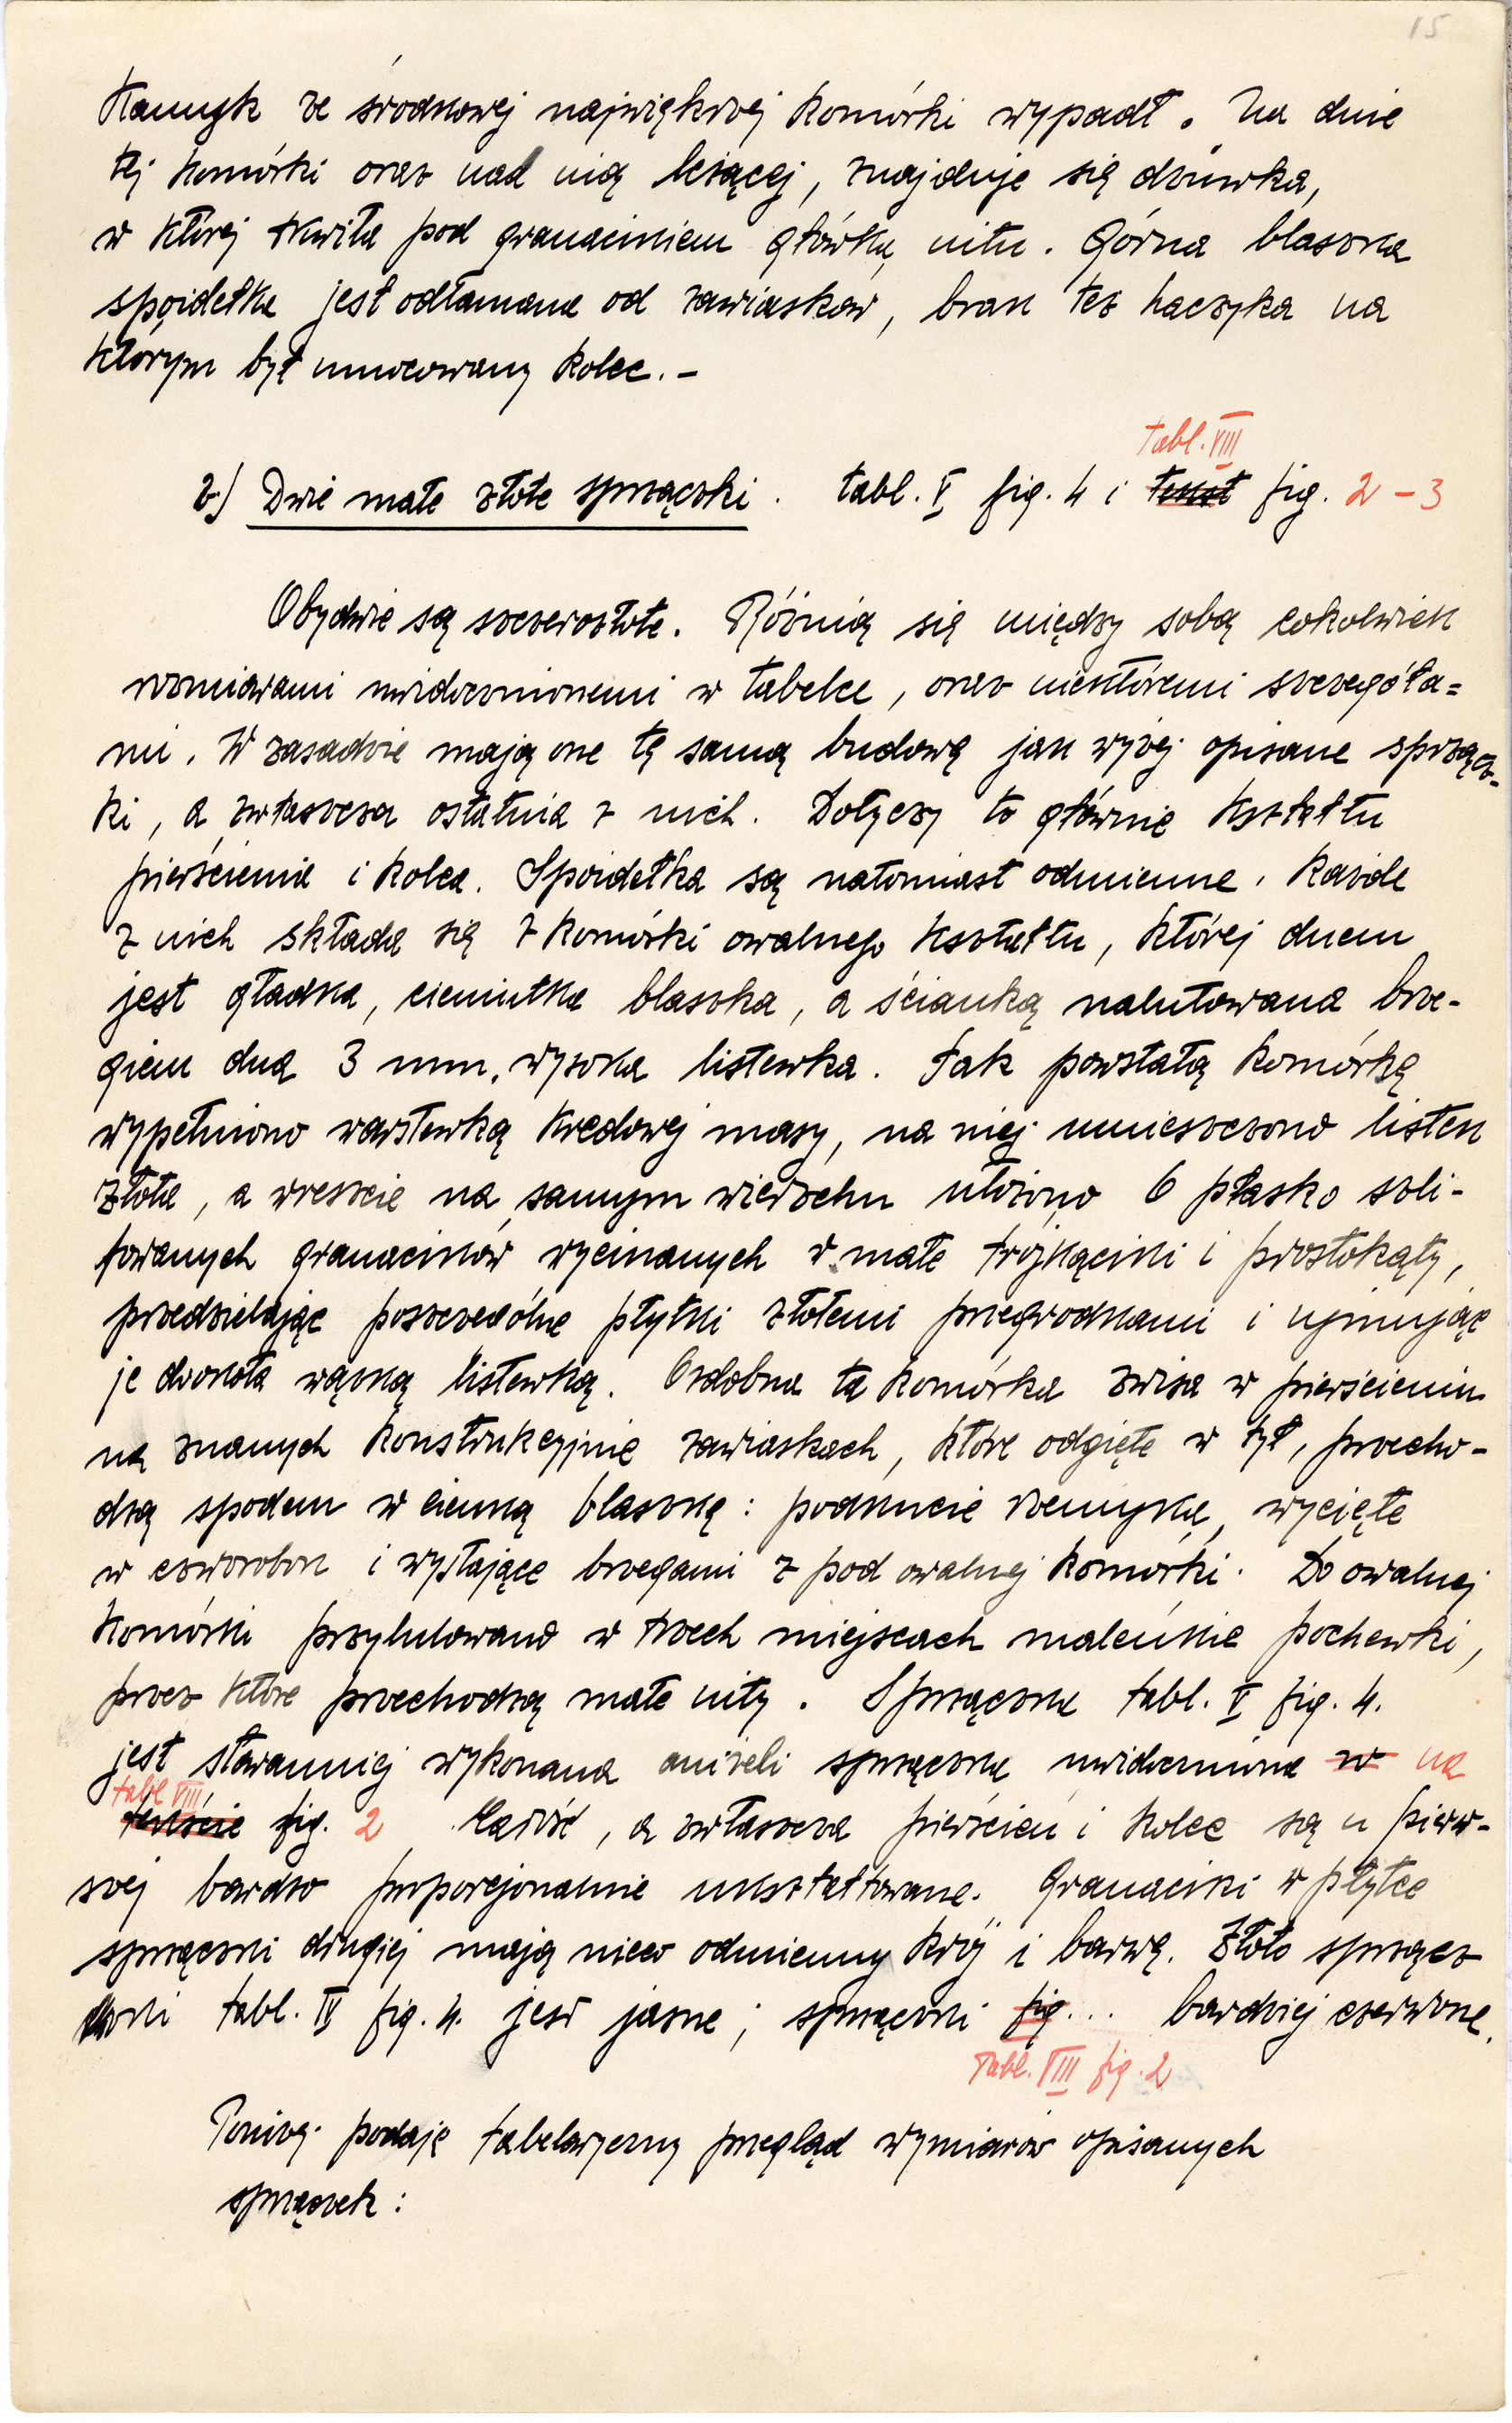 15
Kamyk ze środkowej największej komórki wypadł. Na dnie
tej komórki oraz nad nią leżącej, znajduje się dziurka,
w której tkwiła pod granacikiem główka nitu. Górna blaszka
spoidełka jest odłamana od zawiasków, brak też haczyka na
którym był umocowany kolec. –
tabl. VIII
2.) Dwie małe złote sprzączki. tabl. V fig. 4 i tekst fig. 2 – 3
Obydwie są szczerozłote. Różnią się między sobą cokolwiek
rozmiarami uwidocznionemi w tabelce, oraz niektóremi szczegóła=
mi. W zasadzie mają one tę samą budowę jak wyżej opisane sprzącz-
ki, a zwłaszcza ostatnia z nich. Dotyczy to głównie kształtu
pierścienia i kolca. Spoidełka są natomiast odmienne. Każde
z nich składa się z komórki owalnego kształtu, której dnem
jest gładka, cieniutka blaszka, a ścianką nalutowana brze-
giem dna 3 mm. wysoka listewka. Tak powstałą komórkę
wypełniono warstewką kredowej masy, na niej umieszczono listek
złota, a wreszcie na samym wierzchu ułożono 6 płasko szli-
fowanych granacików wycinanych w małe trójkąciki i prostokąty,
przedzielając poszczególne płytki złotemi przegrodkami i ujmując
je dookoła wąską listewką. Ozdobna ta komórka zwisa w pierścieniu
na znanych konstrukcyjnie zawiaskach, które odgięte w tył, przecho-
dzą spodem w cienką blaszkę: podkucie rzemyka, wycięte
w czworobok i wystające brzegami z pod owalnej komórki. Do owalnej
komórki przylutowano w trzech miejscach maleńkie pochewki,
przez które przechodzą małe nity. Sprzączka tabl. V fig. 4.
jest staranniej wykonana aniżeli sprzączka uwidoczniona w na
tabl VIII
tekście fig. 2 Całość, a zwłaszcza pierścień i kolec są u pierw-
szej bardzo proporcjonalnie ukształtowane. Granaciki w płytce
sprzączki drugiej mają nieco odmienny krój i barwę. Złoto sprzącz
ki tabl. IV fig. 4. jest jasne; sprzączki fig... bardziej czerwone.
Tabl. VIII fig. 2
Poniżej podaję tabelaryczny przegląd wymiarów opisanych
sprzączek: